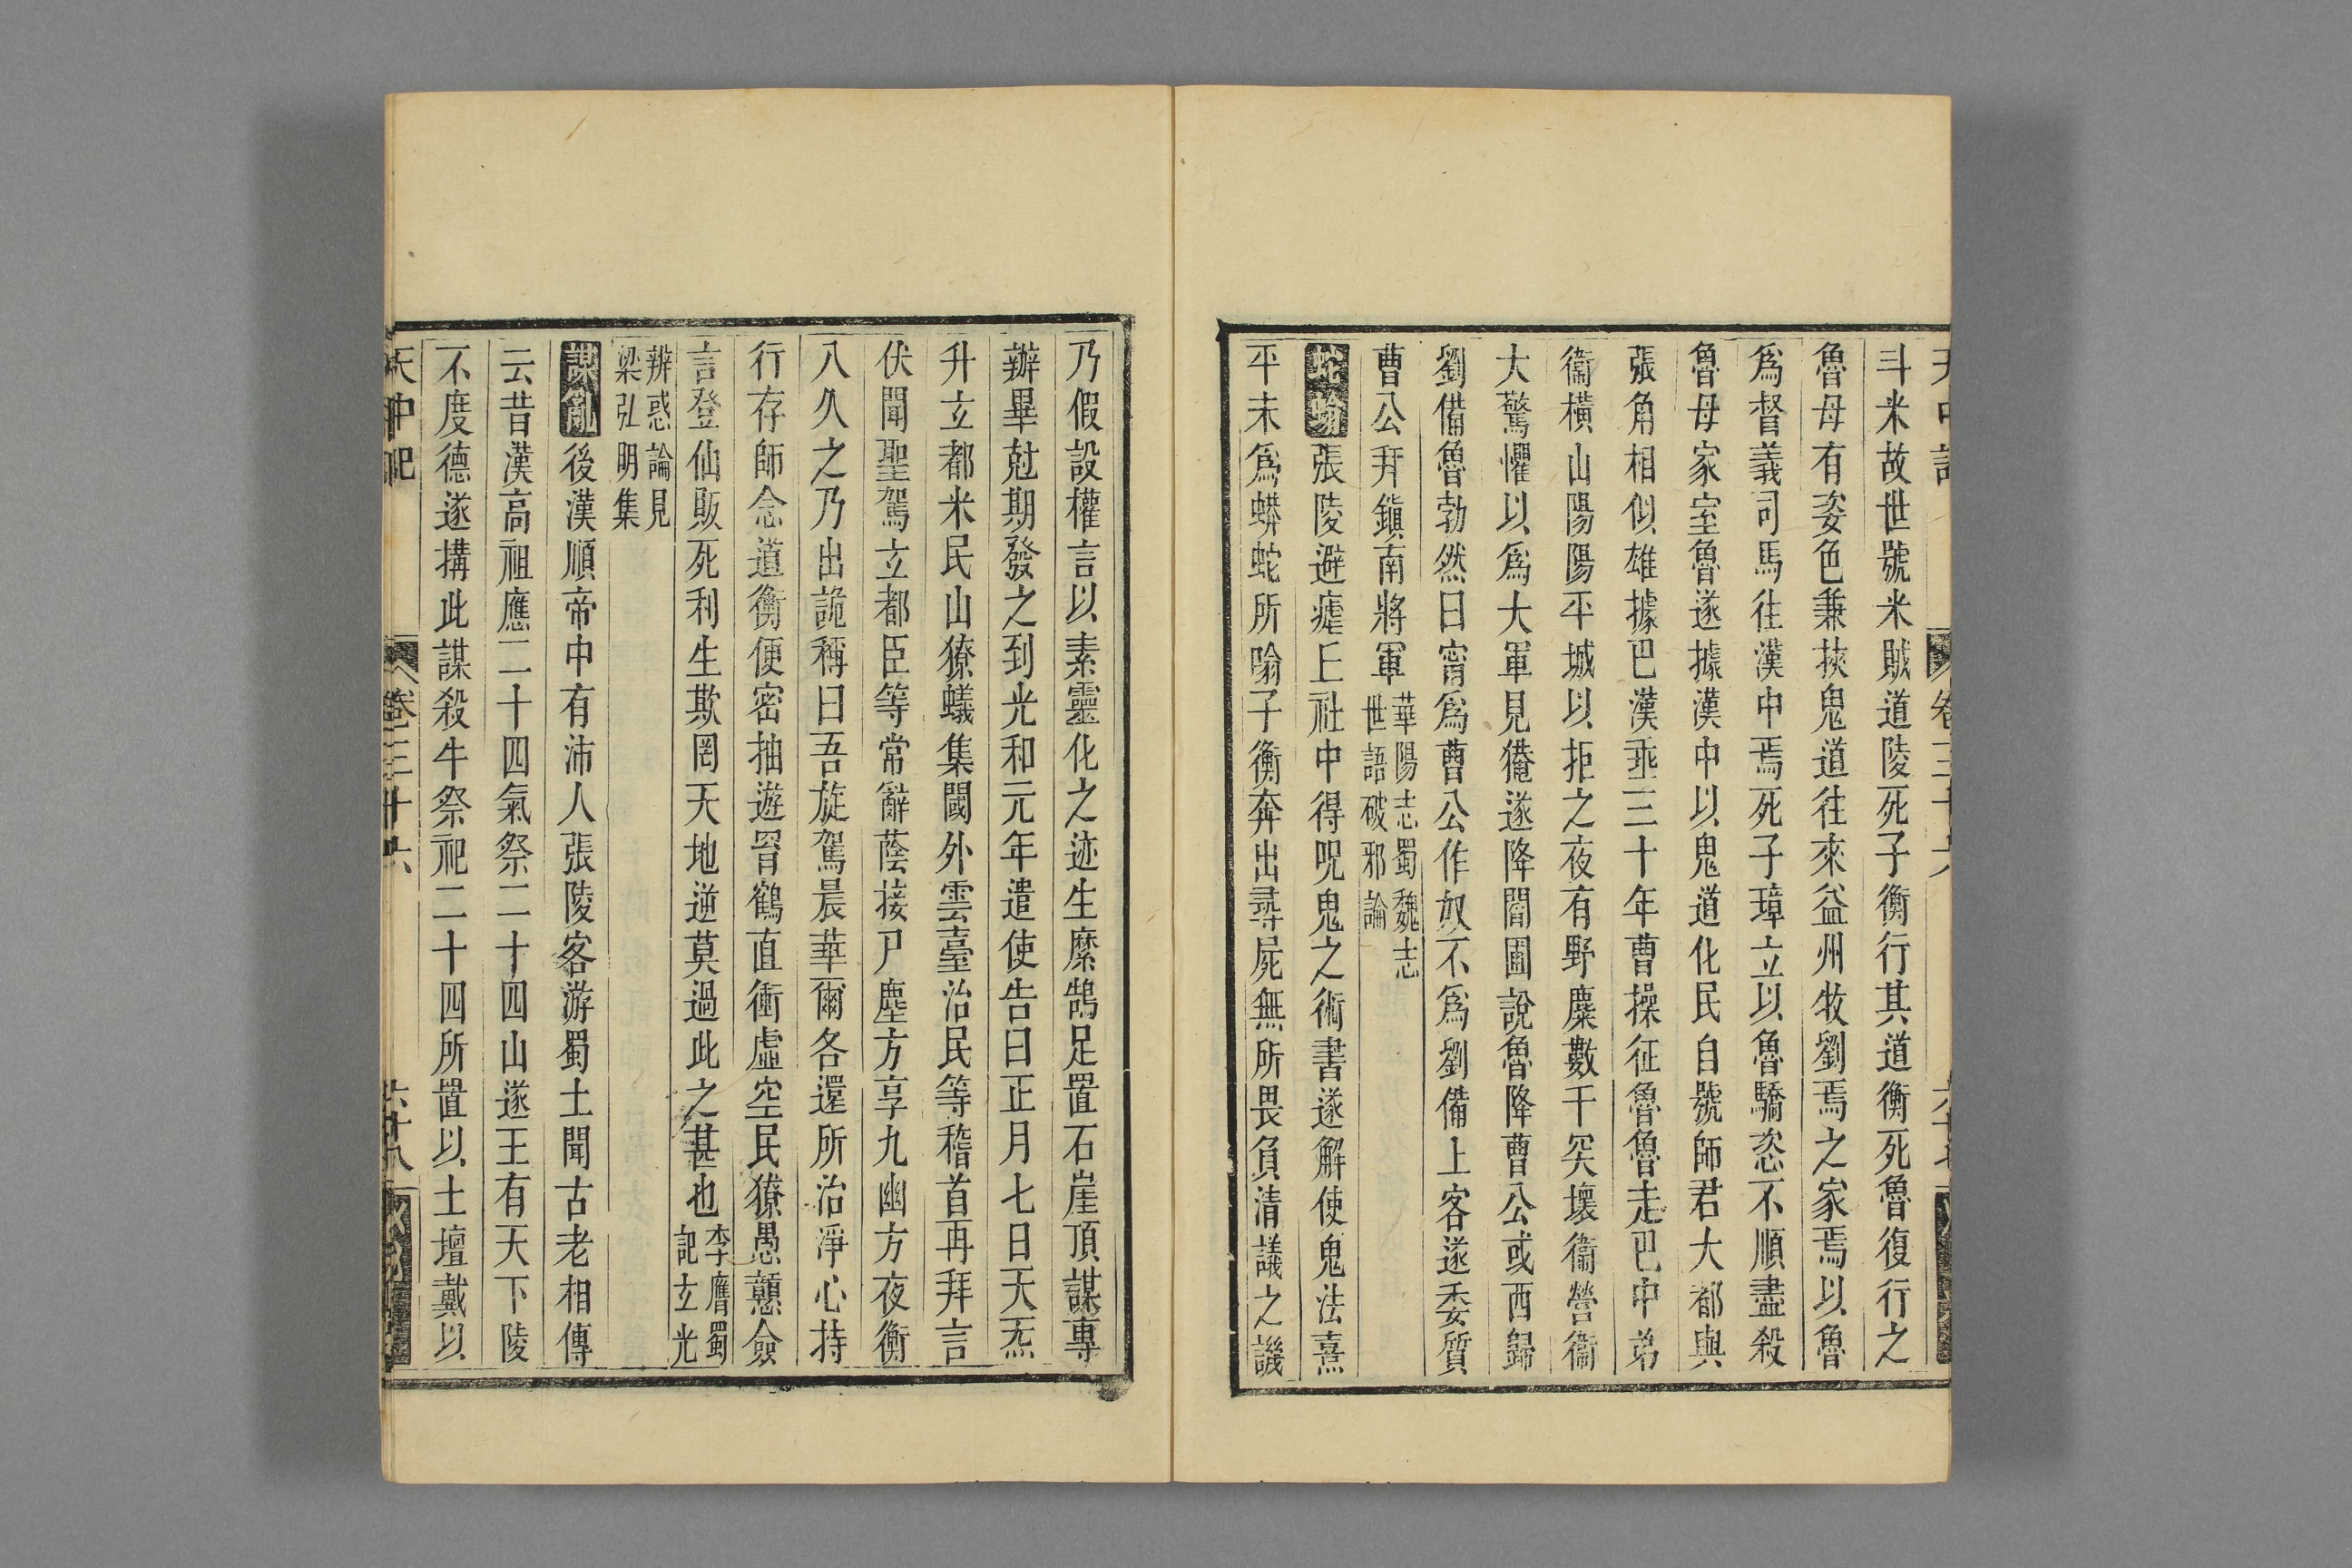 斗米故世號米賊道陵死子衡行其道衡死魯復行之
魯母有姿色兼挾鬼道往來益州牧劉焉之家焉以魯
爲督義司馬往漢中焉死子璋立以魯驕恣不順盡殺
魯母家室魯遂據漢中以鬼道化民自號師君大都與
張角相似雄據巴漢垂三十年曹操征魯魯走巴中弟
衞橫山陽陽平城以拒之夜有野麋數千突壞衞營衞
大驚懼以爲大軍見掩遂降閻圃說魯降曹公或西歸
劉備魯勃然曰甯爲曹公作奴不爲劉備上客遂委質
曹公拜鎮南將軍華陽志蜀魏志世語破邪論
蛇噏張陵避瘧丘社中得呪鬼之術書遂解使鬼法熹
平末爲蟒蛇所噏子衡奔出尋屍無所畏負清議之譏
乃假設權言以素靈化之迹生縻鵠足置石崖頂謀專
辦畢尅期發之到光和元年遣使告曰正月七日天炁
升立都米民山獠蟻集閾外雲臺治民等稽首再拜言
伏聞聖駕立都臣等常辭蔭接尸塵方享九幽方夜衡
入久之乃出詭稱曰吾旋駕晨華爾各還所治淨心持
行存師念道衡便密抽遊罥鶴直衝虛空民獠愚戇僉
言登仙販死利生欺罔天地逆莫過此之甚也李膺蜀記玄光
辨惑論見梁弘明集
謀亂後漢順帝中有沛人張陵客游蜀土聞古老相傳
云昔漢高祖應二十四氣祭二十四山遂王有天下陵
不度德遂搆此謀殺牛祭祀二十四所置以土壇戴以
天中記 卷三十六 六十八